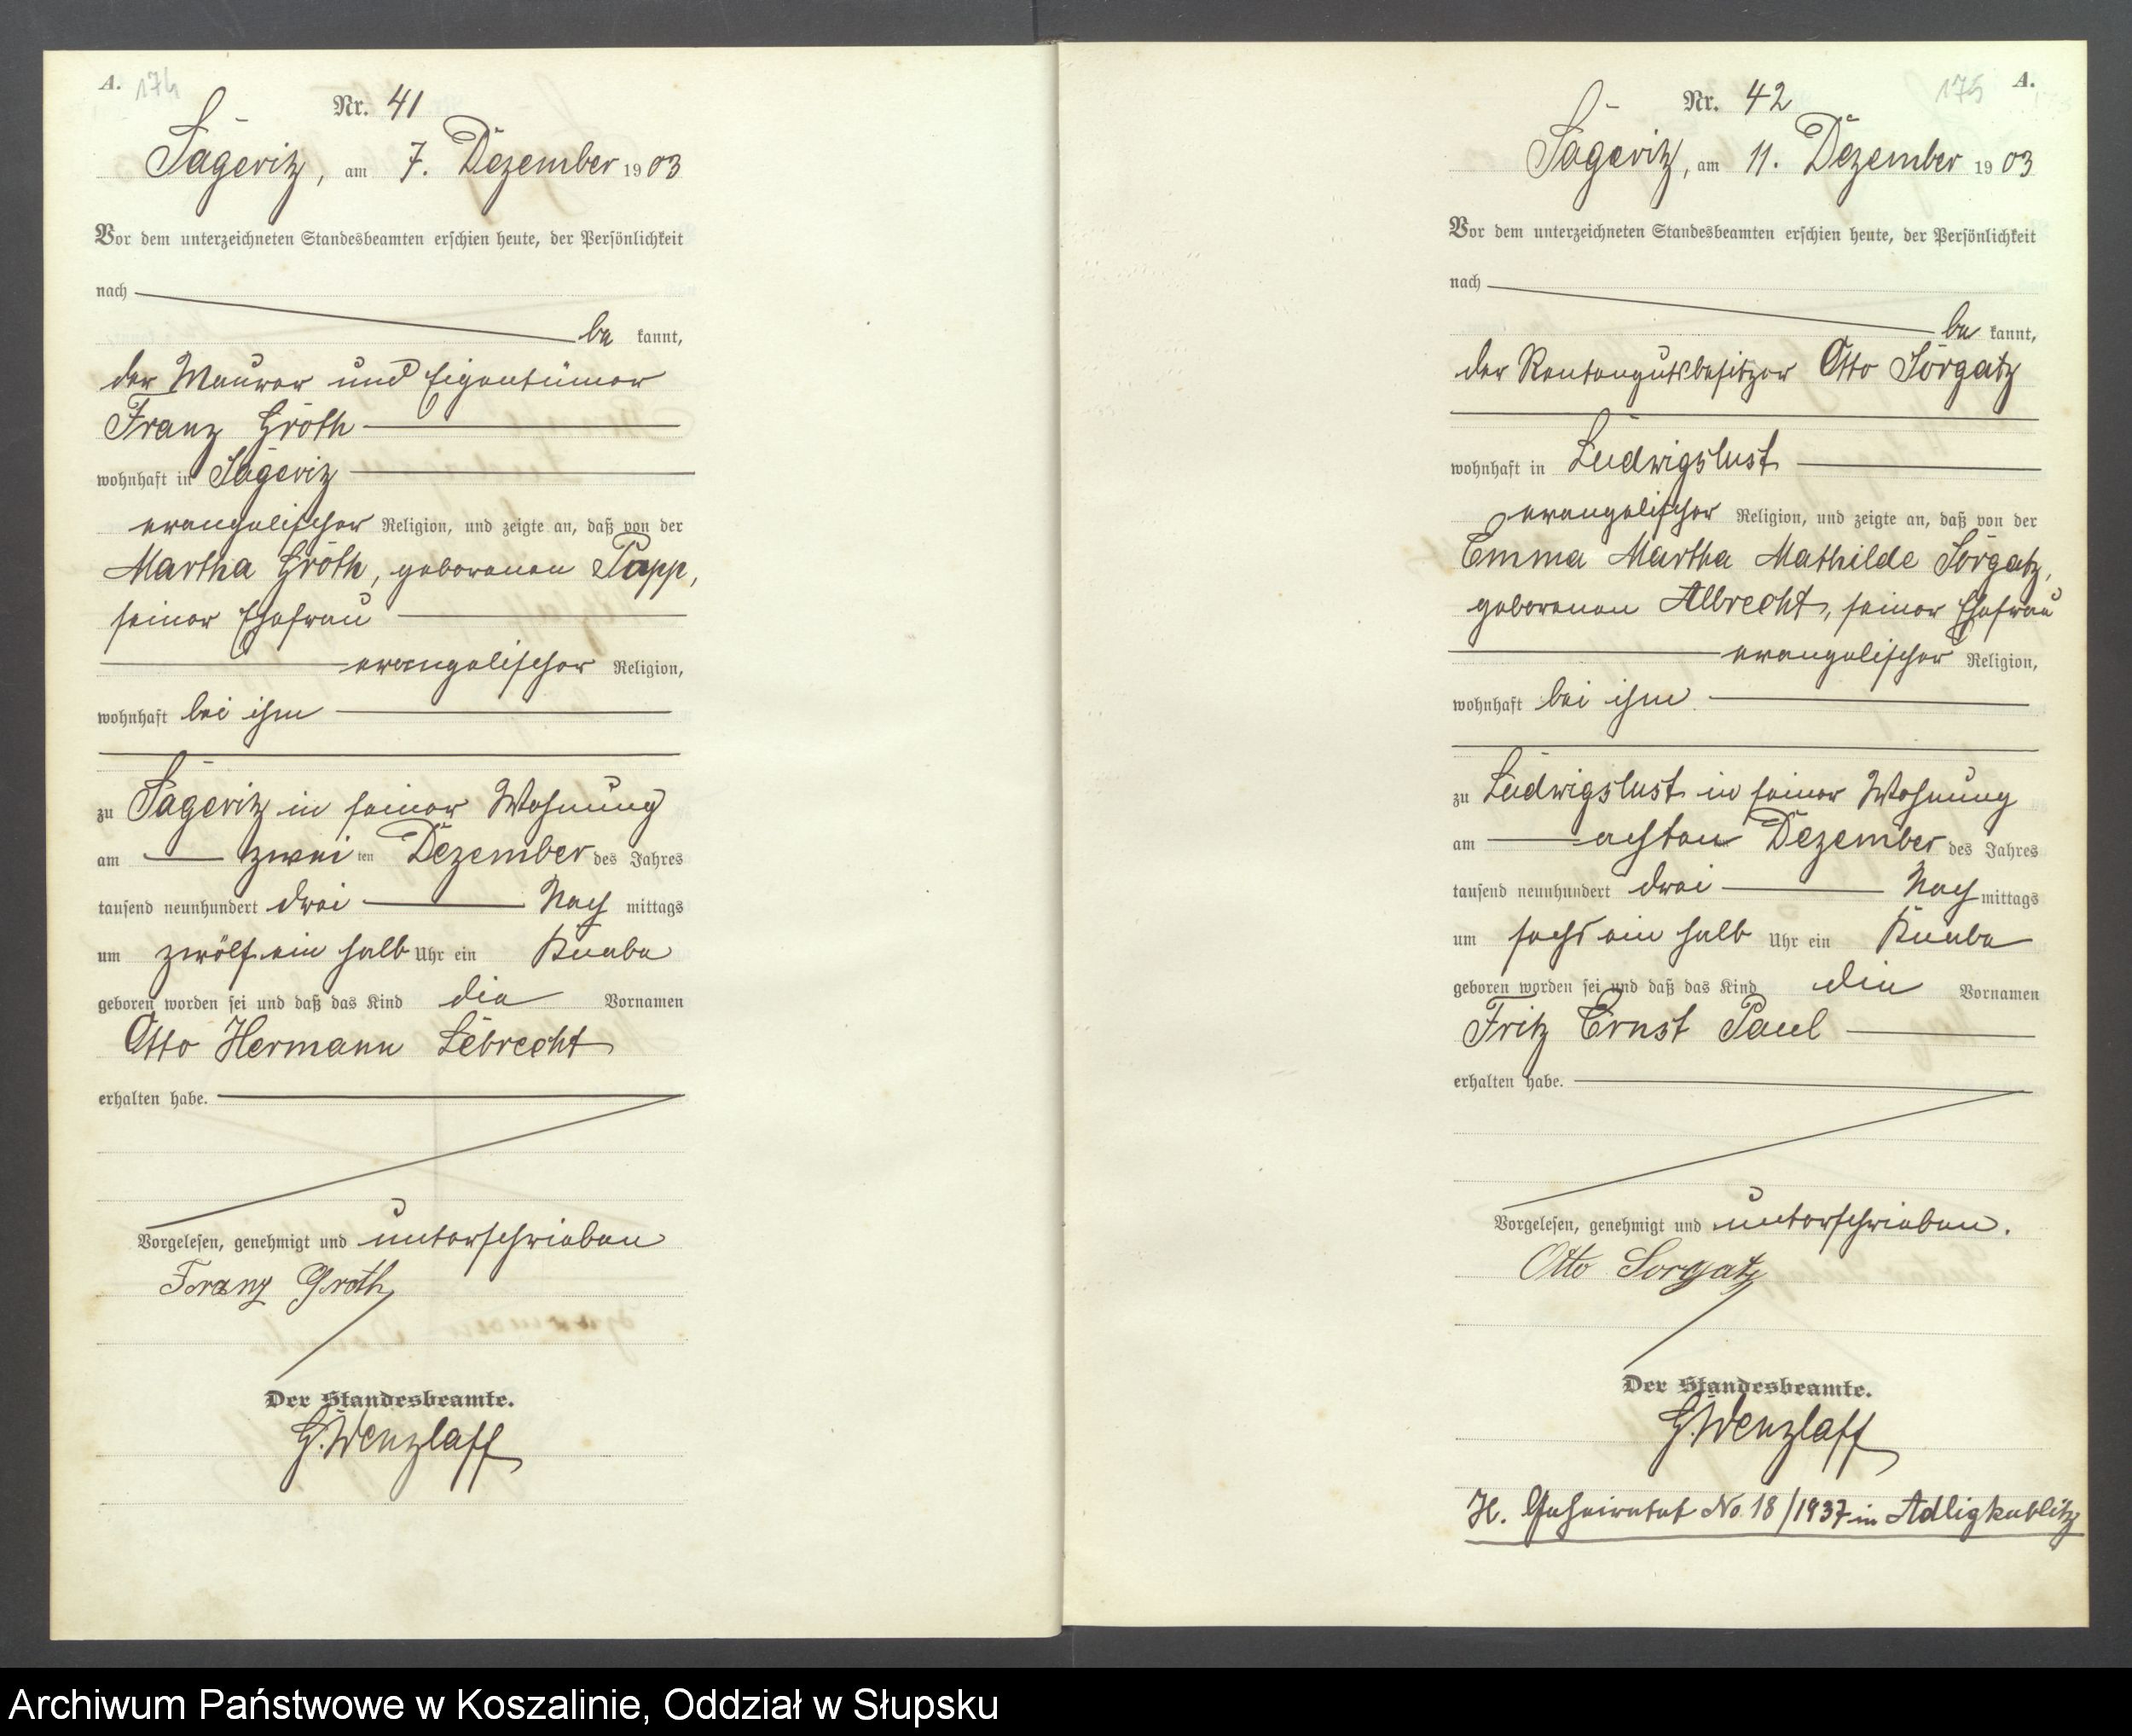 A. 174
Nr. 41
Sageritz, am 7. Dezember 1903
Vor dem unterzeichneten Standesbeamten erschien heute, der Persönlichkeit
nach
be kannt,
der Maurer und Eigentümer
Franz Groth
wohnhaft in Sageritz
evangelischer Religion, und zeigte an, daß von der
Martha Groth, geborenen Papp,
seiner Ehefrau
evangelischer Religion,
wohnhaft bei ihm
zu Sageritz in seiner Wohnung
am zwei ten Dezember des Jahres
tausend neunhundert drei Nach mittags
um zwölf ein halb Uhr ein Knabe
geboren worden sei und daß das Kind die Vornamen
Otto Hermann Lebrecht
erhalten habe.
Vorgelesen, genehmigt und unterschrieben
Franz Groth
Der Standesbeamte.
G. Wenzlaff
175 A.
Nr. 42
Sageritz, am 11. Dezember 1903
Vor dem unterzeichneten Standesbeamten erschien heute, der Persönlichkeit
nach
be kannt,
der Rentengutsbesitzer Otto Sorgatz
wohnhaft in Ludwigslust
evangelischer Religion, und zeigte an, daß von der
Emma Martha Mathilde Sorgatz,
geborenen Albrecht, seiner Ehefrau
evangelischer Religion,
wohnhaft bei ihm
zu Ludwigslust in seiner Wohnung
am achten Dezember des Jahres
tausend neunhundert drei Nach mittags
um sechs ein halb Uhr ein Knabe
geboren worden sei und daß das Kind die Vornamen
Fritz Ernst Paul
erhalten habe.
Vorgelesen, genehmigt und unterschrieben.
Otto Sorgatz
Der Standesbeamte.
G. Wenzlaff
H. Geheiratet No. 18/1937 in Adligkublitz
Archiwum Państwowe w Koszalinie, Oddział w Słupsku